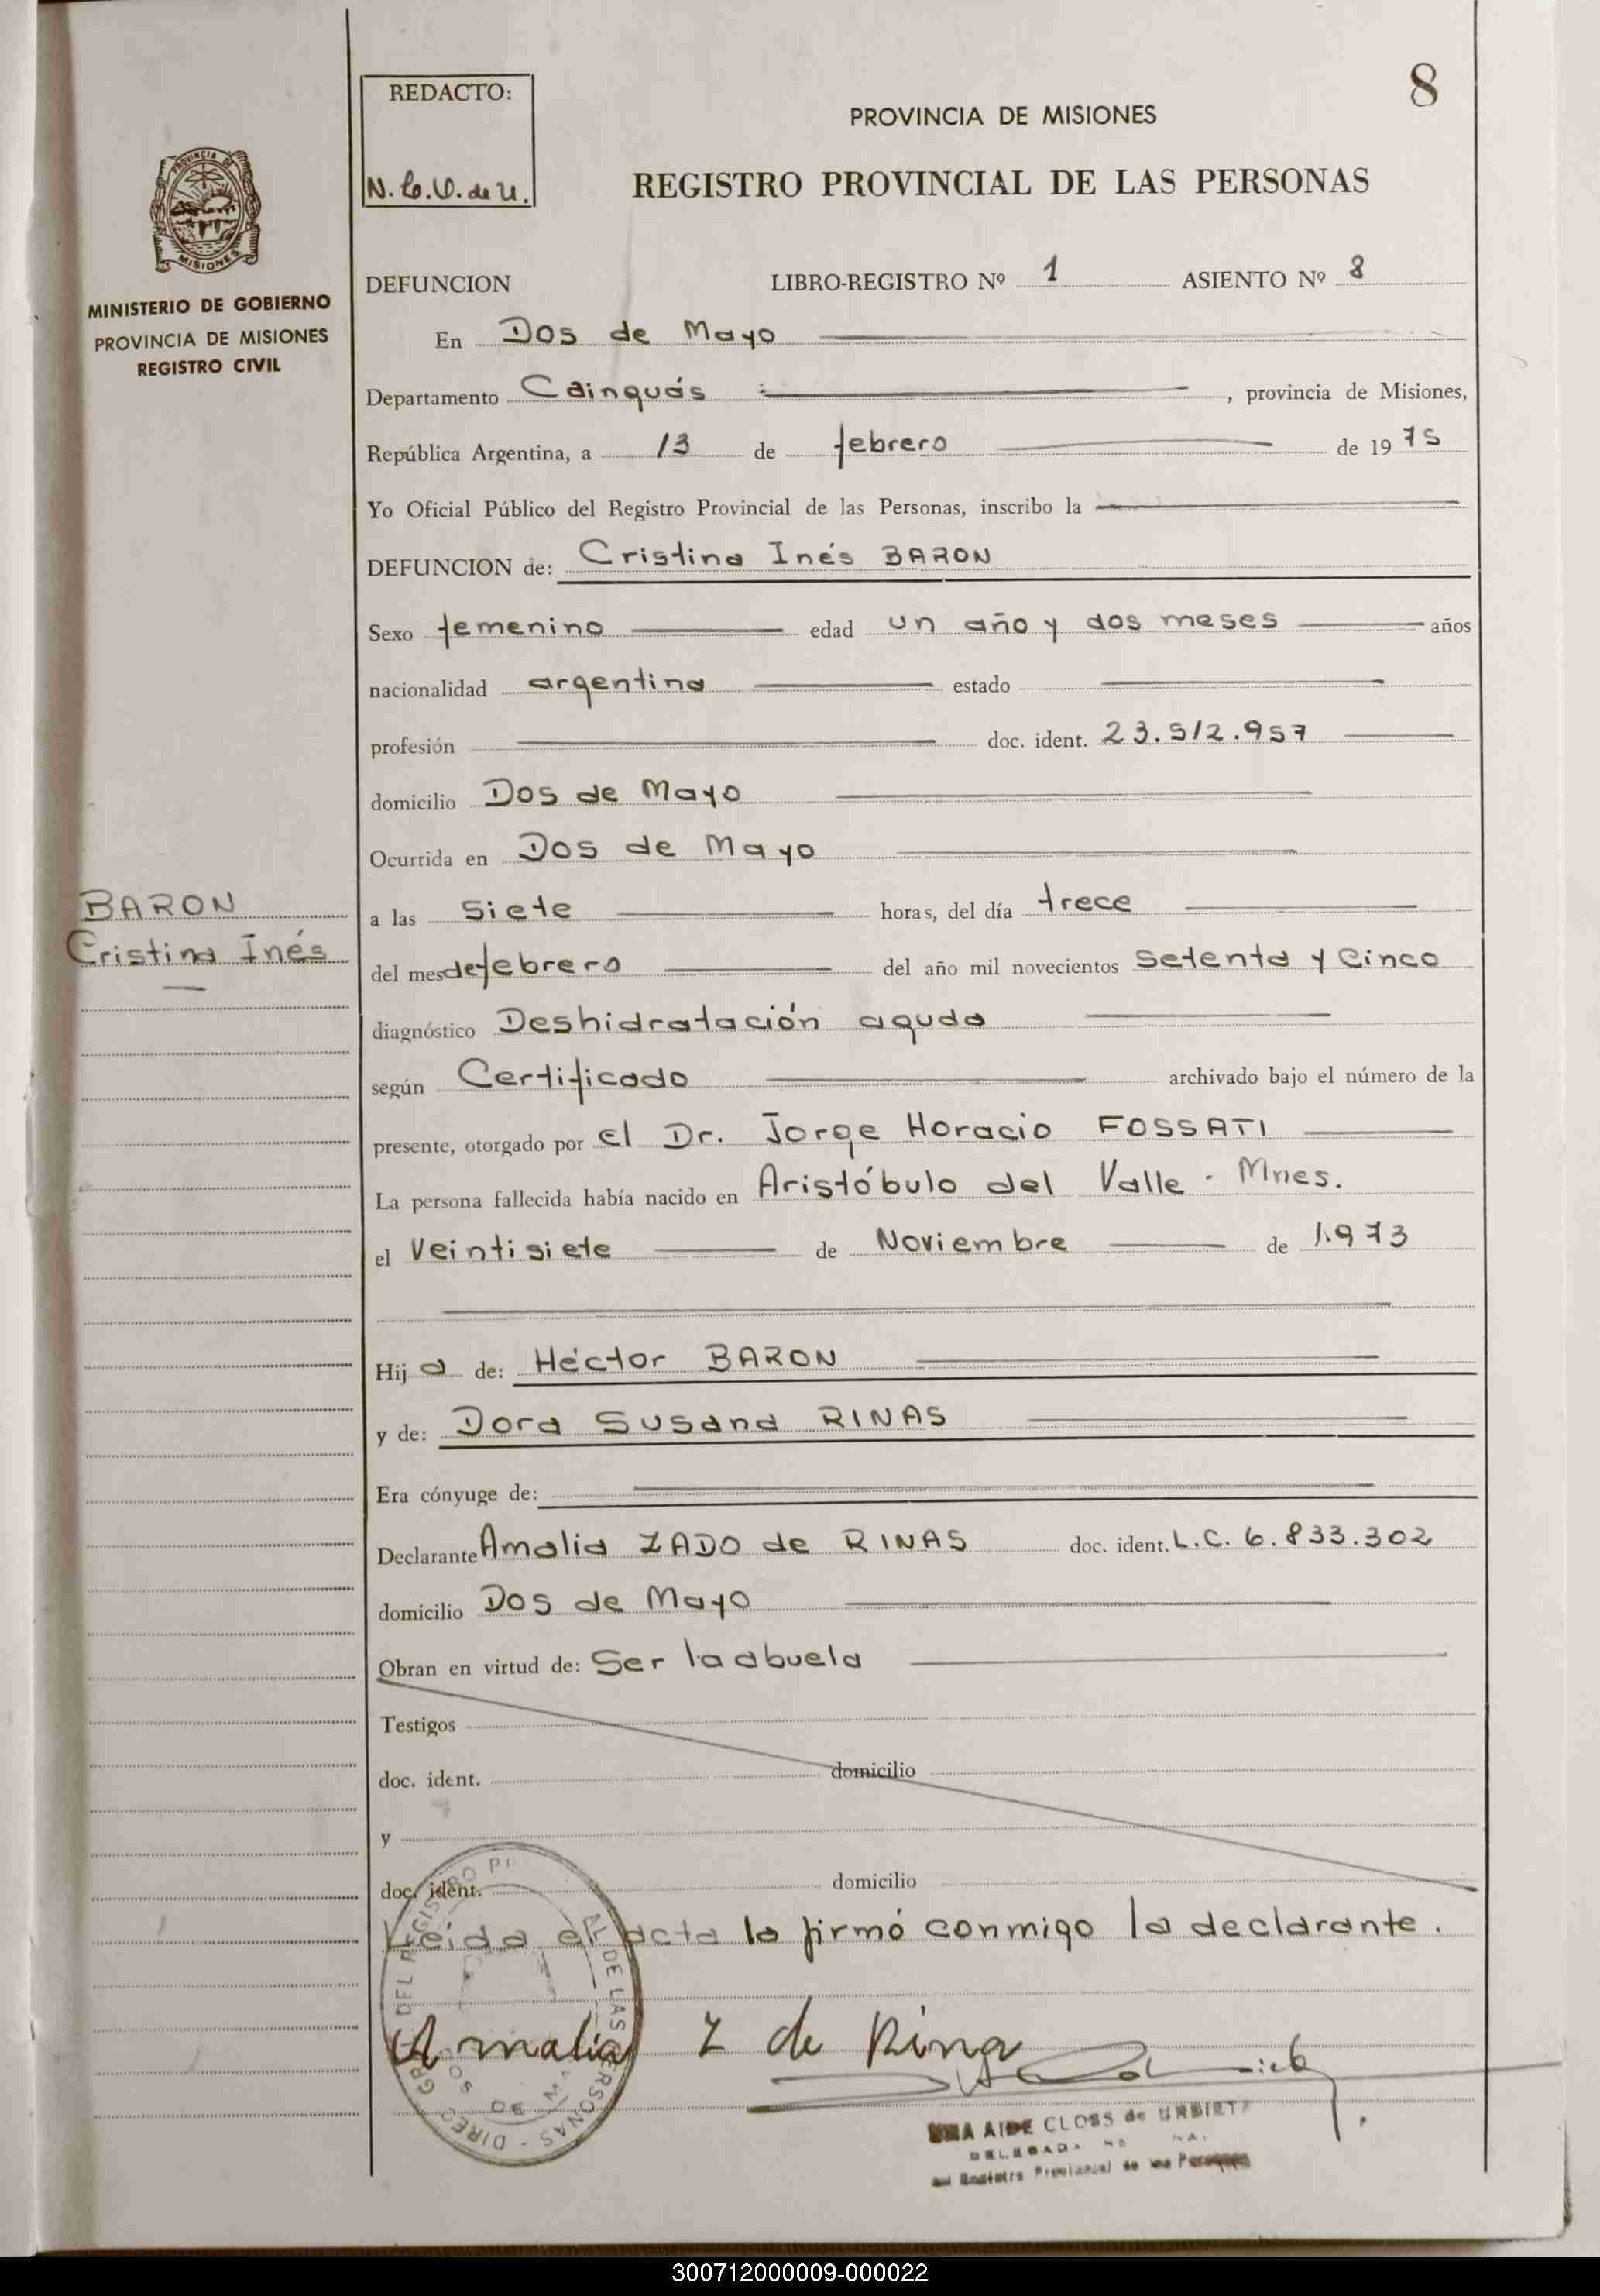 8
REDACTO:
N. C. V. de U.
PROVINCIA DE MISIONES
REGISTRO PROVINCIAL DE LAS PERSONAS
PROVINCIA DE
MISIONES
MINISTERIO DE GOBIERNO
PROVINCIA DE MISIONES
REGISTRO CIVIL
DEFUNCION LIBRO-REGISTRO Nº 1 ASIENTO Nº 8
En Dos de Mayo
Departamento Cainguás, provincia de Misiones,
República Argentina, a 13 de febrero de 1975
Yo Oficial Público del Registro Provincial de las Personas, inscribo la
DEFUNCION de: Cristina Inés BARON
Sexo femenino edad un año y dos meses años
nacionalidad argentina estado
profesión doc. ident. 23.512.957
domicilio Dos de Mayo
Ocurrida en Dos de Mayo
BARON
Cristina Inés
a las siete horas, del día trece
del mes de febrero del año mil novecientos setenta y cinco
diagnóstico Deshidratación aguda
según Certificado archivado bajo el número de la
presente, otorgado por el Dr. Jorge Horacio FOSSATI
La persona fallecida había nacido en Aristóbulo del Valle - Mnes.
el Veintisiete de Noviembre de 1.973
Hija de: Héctor BARON
y de: Dora Susana RINAS
Era cónyuge de:
Declarante Amalia ZADO de RINAS doc. ident. L.C. 6.833.302
domicilio Dos de Mayo
Obran en virtud de: Ser la abuela
Testigos
doc. ident. domicilio
y
doc. ident. domicilio
Leida el acta la firmó conmigo la declarante.
Amalia Z de Rina
AIDE CLOSS de
DELEGADA
Registro Provincial de las Personas
300712000009-000022